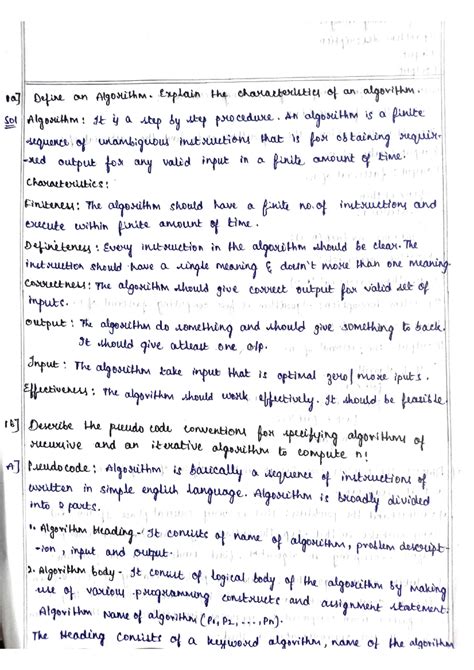 1a] Define an Algorithm. Explain the characteristics of an algorithm.
Sol Algorithm: It is a step by step procedure. An algorithm is a finite
sequence of unambiguous instructions that is for obtaining requir-
-red output for any valid input in a finite amount of time.
Characteristics:
Finiteness: The algorithm should have a finite no. of instructions and
execute within finite amount of time.
Definiteness: Every instruction in the algorithm should be clear. The
instruction should have a single meaning & doesn't more than one meaning.
Correctness: The algorithm should give correct output for valid set of
inputs.
Output: The algorithm do something and should give something to back.
It should give atleast one o/p.
Input: The algorithm take input that is optimal zero/more iputs.
Effectiveness: The algorithm should work effectively. It should be feasible.
1b] Describe the pseudo code conventions for specifying algorithms of
recursive and an iterative algorithm to compute n!
A] Pseudocode: Algorithm is basically a sequence of instructions of
written in simple english language. Algorithm is broadly divided
into 2 parts.
1. Algorithm Heading - It consists of name of algorithm, problem descript-
-ion, input and output.
2. Algorithm body - It consist of logical body of the algorithm by making
use of various programming constructs and assignment statement.
Algorithm Name of algorithm (P1, P2, ..., Pn).
The Heading consists of a keyword algorithm, name of the algorithm